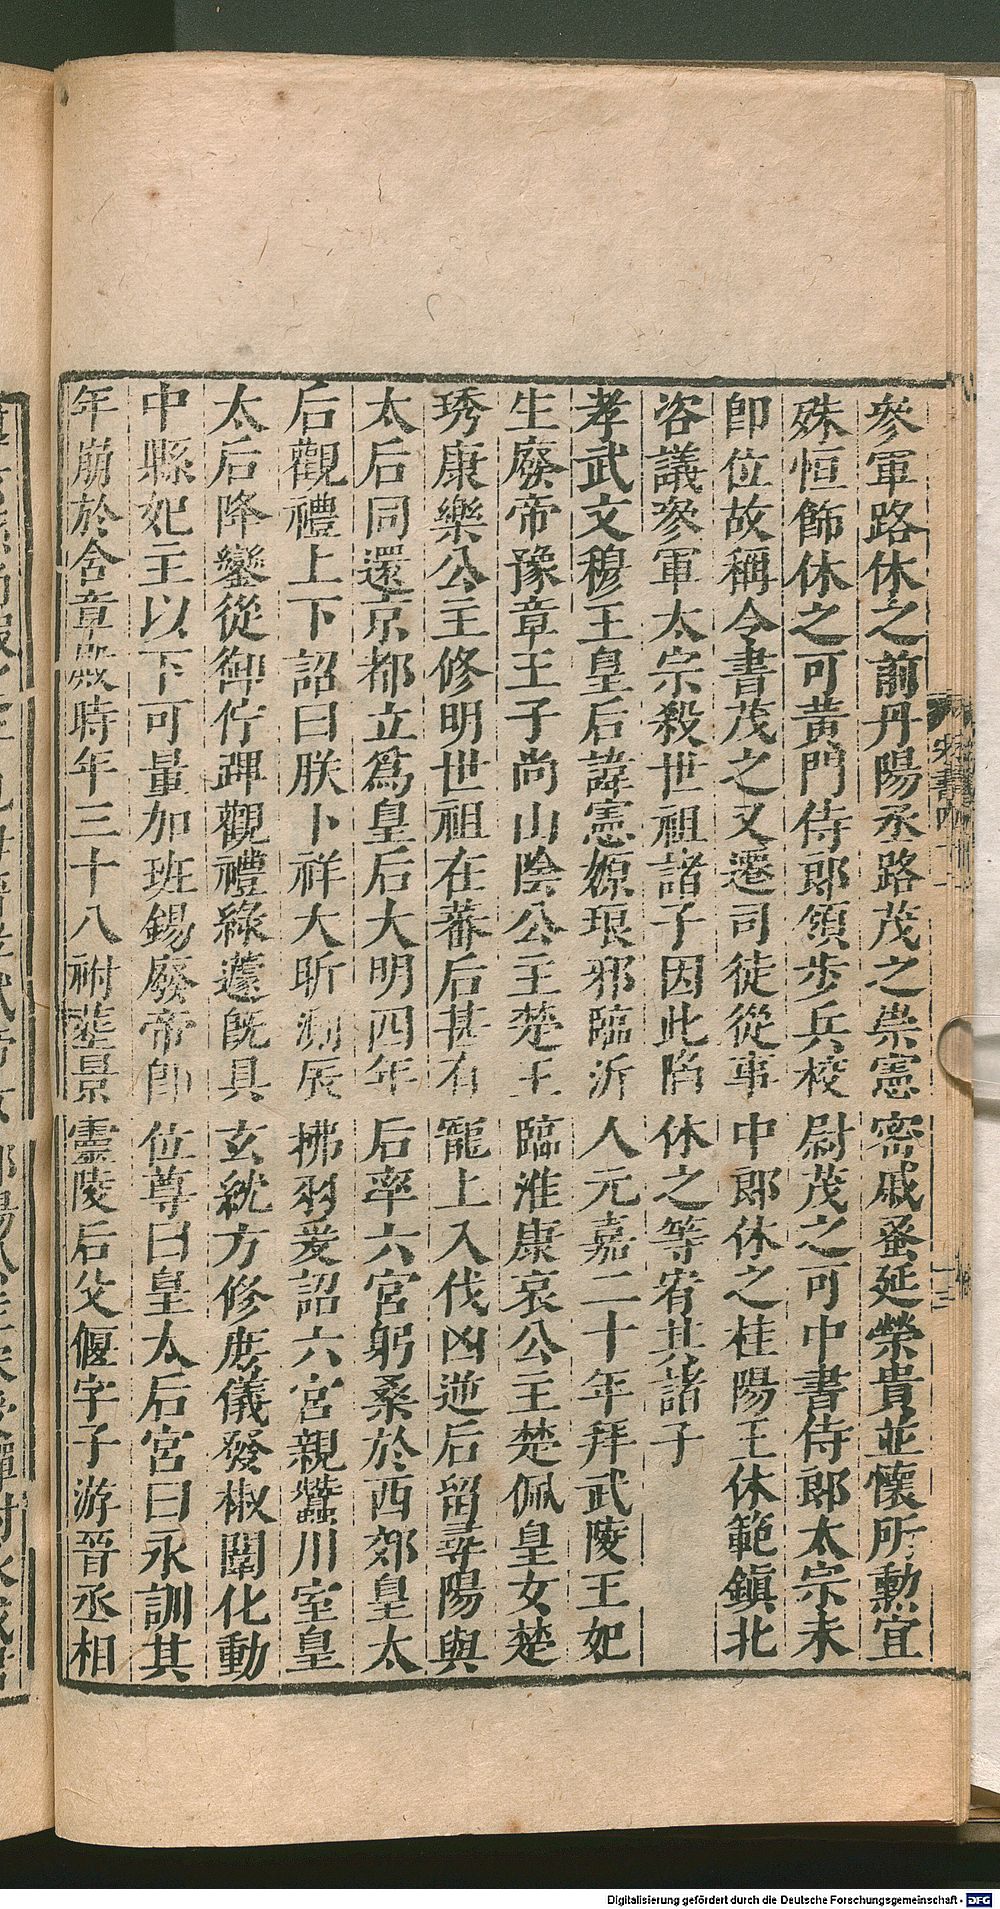 參軍路休之前丹陽丞路茂之崇憲密戚蚤延榮貴並懷所勲宜
殊恒飾休之可黄門侍郎領步兵校尉茂之可中書侍郎太宗未
即位故稱令書茂之又遷司徒從事中郎休之桂陽王休範鎮北
咨議參軍太宗殺世祖諸子因此陷休之等宥其諸子
孝武文穆王皇后諱憲嫄琅邪臨沂人元嘉二十年拜武陵王妃
生廢帝豫章王子尚山陰公主楚玉臨淮康哀公主楚佩皇女楚
琇康樂公主修明世祖在蕃后甚有寵上入伐凶逆后留尋陽與
太后同還京都立爲皇后大明四年后率六宮躬桑於西郊皇太
后觀禮上下詔曰朕卜祥大昕測辰拂羽爰詔六宮親蠶川室皇
太后降鑾從御佇蹕觀禮綠蘧旣具玄紞方修庶儀發椒闈化動
中縣妃主以下可量加班錫廢帝即位尊曰皇太后宮曰永訓其
年崩於含章殿時年三十八祔葬景靈陵后父偃字子游晉丞相
宋書四十一
十三
Digitalisierung gefördert durch die Deutsche Forschungsgemeinschaft - DFG